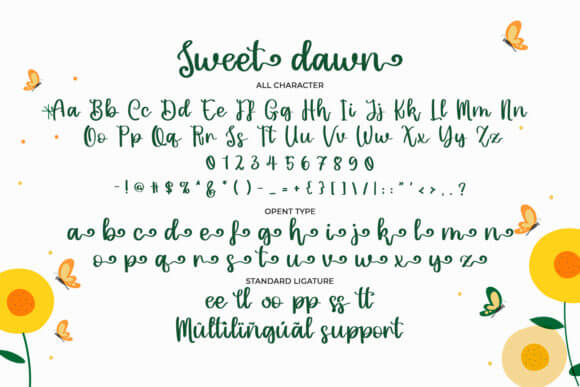 Sweet dawn
ALL CHARACTER
Aa Bb Cc Dd Ee Ff Gg Hh Ii Jj Kk Ll Mm Nn
Oo Pp Qq Rr Ss Tt Uu Vv Ww Xx Yy Zz
0 1 2 3 4 5 6 7 8 9 0
- ! @ # $ % ^ & * ( ) - _ = + { } [ ] \ / | : ; " ' < > , . ?
OPENT TYPE
a b c d e f g h i j k l m n
o p q r s t u v w x y z
STANDARD LIGATURE
ee ll oo pp ss tt
Mùltílïñgúãl support